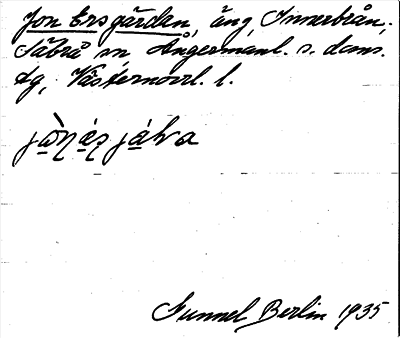 Jon Ersgärdan, äng, Innerbrån,
Säbrå sn Ångermanl. s. doms.
tg, Västernorrl. l.
Gunnel Berlin 1935